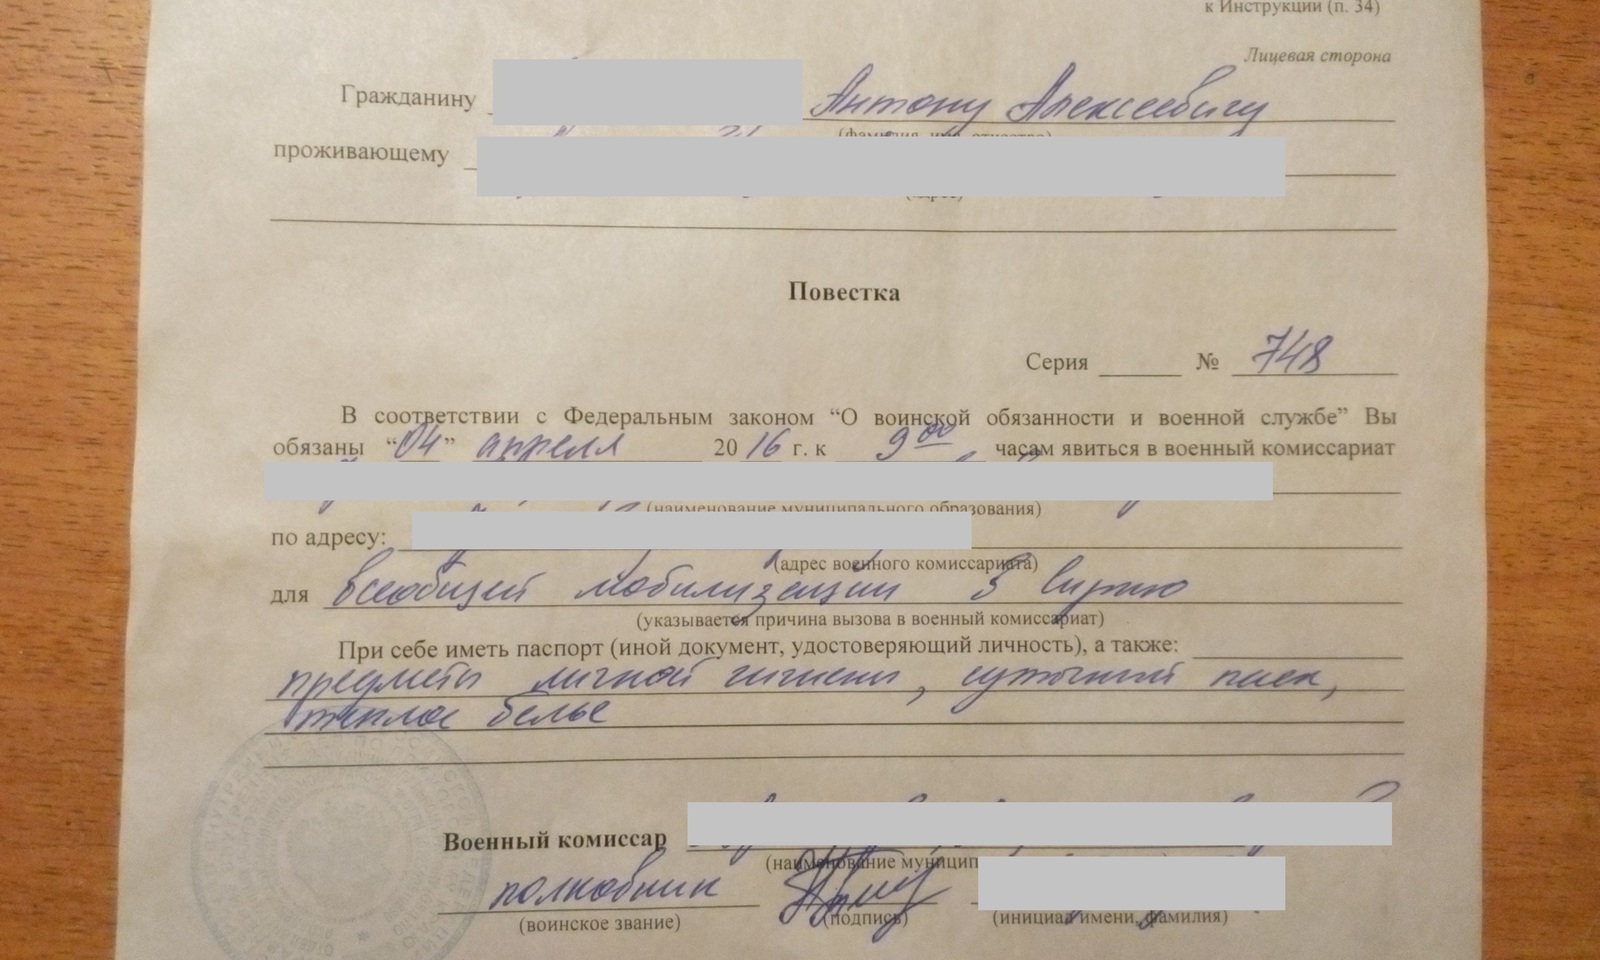 к Инструкции (п. 34)
Лицевая сторона
Гражданину Антону Алексеевичу
(фамилия, имя, отчество)
проживающему
(адрес)
Повестка
Серия № 748
В соответствии с Федеральным законом “О воинской обязанности и военной службе” Вы
обязаны “04” апреля 2016 г. к 9 00 часам явиться в военный комиссариат
(наименование муниципального образования)
по адресу:
(адрес военного комиссариата)
для всеобщей мобилизации в Сирию
(указывается причина вызова в военный комиссариат)
При себе иметь паспорт (иной документ, удостоверяющий личность), а также:
предметы личной гигиены, суточный паек,
теплое белье
Военный комиссар
(наименование муницип
полковник
(воинское звание) (подпись) (инициал имени, фамилия)